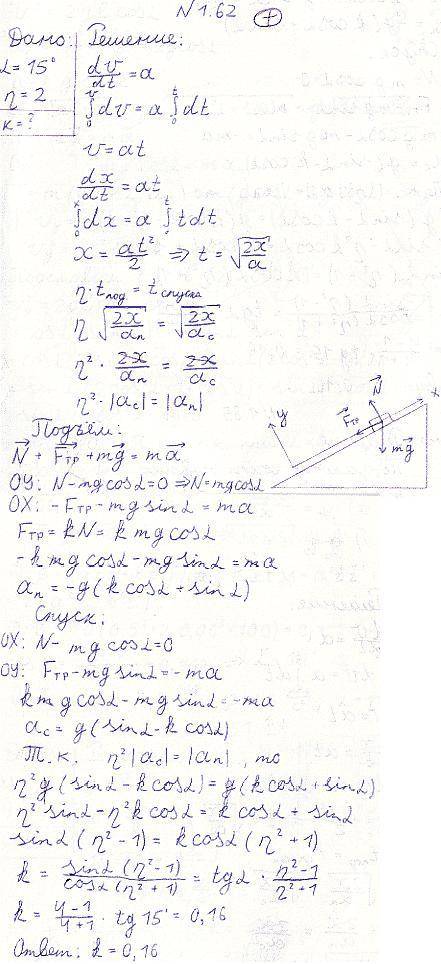 N 1.62 7
Дано: Решение:
α = 15°
η = 2
k = ?
dv/dt = a
∫₀ᵛ dv = a ∫₀ᵗ dt
v = at
dx/dt = at
∫₀ˣ dx = a ∫₀ᵗ t dt
x = at²/2 ⇒ t = √(2x/a)
η · tпод = tспуска
η √(2x/aп) = √(2x/aс)
η² · 2x/aп = 2x/aс
η² · |aс| = |aп|
Подъём:
N⃗ + F⃗тр + mg⃗ = ma⃗
OY: N - mg cosα = 0 ⇒ N = mg cosα
OX: - Fтр - mg sinα = ma
Fтр = kN = k mg cosα
- k mg cosα - mg sinα = ma
aп = - g (k cosα + sinα)
Спуск:
OX: N - mg cosα = 0
OY: Fтр - mg sinα = - ma
k mg cosα - mg sinα = - ma
aс = g (sinα - k cosα)
Т.к. η² |aс| = |aп|, то
η² g (sinα - k cosα) = g (k cosα + sinα)
η² sinα - η² k cosα = k cosα + sinα
sinα (η² - 1) = k cosα (η² + 1)
k = sinα (η² - 1)/cosα (η² + 1) = tgα · η² - 1/η² + 1
k = 4 - 1/4 + 1 · tg 15° = 0,16
Ответ: k = 0,16
y
F⃗тр
N⃗
x
mg⃗